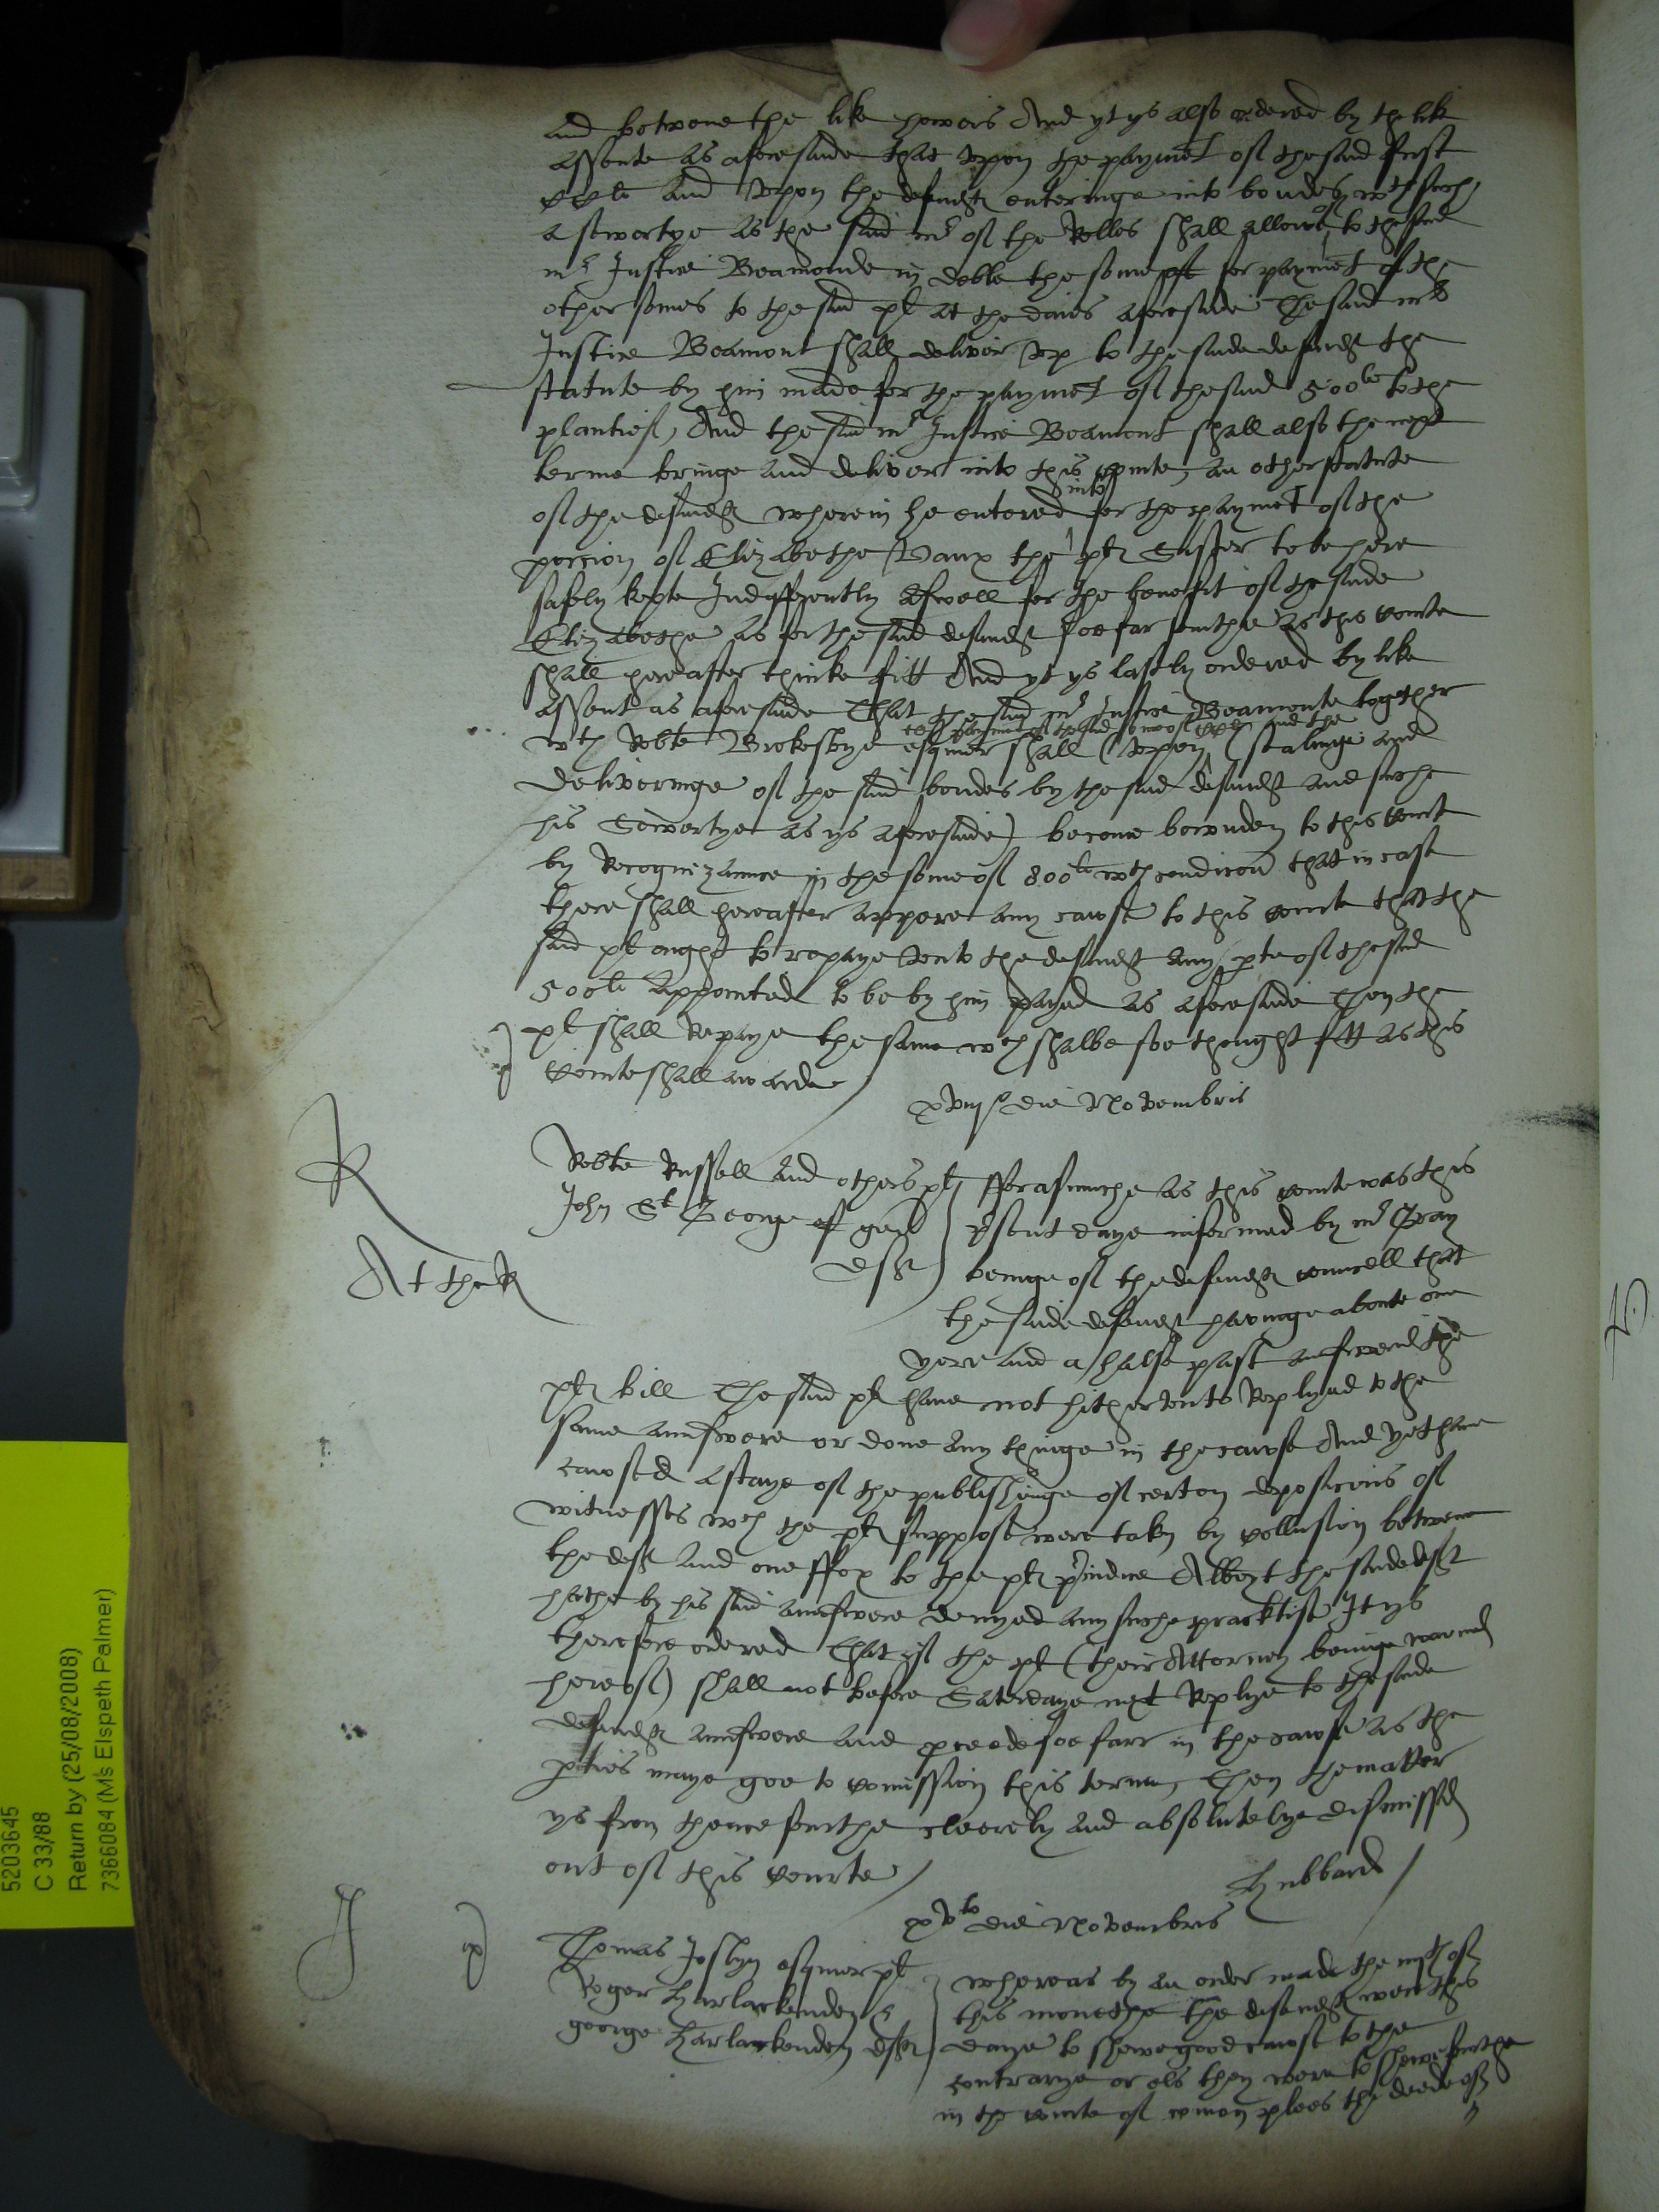 and betwene the like howers And yt ys also ordered by the like
assente as aforesaide that upon the paymet of the said first
and upon the defendtes enteringe into bondes wth such
a suertye as the said mr of the Rolles shall allowe to the said
mr Justice Beamonde in doble the some for paymet of the
other somes to the said pl at the daies aforesaide The said mr
Justice Beamont shall deliver up to the saide defendt the
statute by him made for the paymet of the said 500li to the
plantief, And the said mr Justice Beamont shall also the next
terme bringe and deliver into this courte, an other statute
of the defendtes wherein he entered into for the paymet of the
porcion of Elizabethe Vaux the pltes Sister to be here
safely kepte Indifferently aswell for the benefit of the saide
Elizabethe as for the said defendt soe far furthe as this courte
shall hereafter thinke fitt And yt ys lastly ordered by like
assent as aforesaide That the said mr Justice Beamonte together
wth Robte Brokesbye esquier shall (upon sealinge and
the paymet of the said and the
deliveringe of the said bondes by the said defendt and suche
his Sewertye as ys aforesaide) become bounden to this Court
by Recognizaunce in the some of 800li wth condicon that in case
there shall hereafter appere any cause to this courte that the
said pl ought to repaye unto the defendt any pte of the said
500li appointed to be by him payed as aforesaide Then the
pl shall Repaye the same wch shalbe soe thought fitt as this
Courte shall awarde
xviijo die Novembris
R
Robte Russell and others pltes
John St George gen
deft
At the R
fforasmuche as this courte was this
psent daye informed by mr Gray
beinge of the defendtes councell that
the saide defendt havinge aboute one
yere and a halfe past answered the
pltes bill The said pl have not hitherunto Replyed to the
same answere or done any thinge in the cause And yet have
caused a staye of the publishinge of certen deposicons of
witnesses wch the pltes suppose were taken by collusion betwene
the deft and one ffox to the pltes piudice Albeyt the saide deft
hathe by his said answere denyed any suche practise It ys
therefore ordered That if the pl (their Attorney beinge warned
hereof) shall not before Saterdaye next Replye to the saide
defendtes answere and pceede soe farr in the cause as the
pties maye goe to comission this terme, Then the matter
ys from thencefurthe cleerely and absolutelye dismissed
out of this courte
Hubbard
xvto die Novembris
J
Thomas Joslyn esquier pl
Roger Harlackenden &
george Harlackenden deftes
Whereas by an order made the of
this monethe the defendtes were this
daye to shewe good cause to the
contrarye or els they were to shewe furthe
in the courte of comon plees the deede of
5203645
C 33/88
Return by (25/08/2008)
7366084 (Ms Elspeth Palmer)